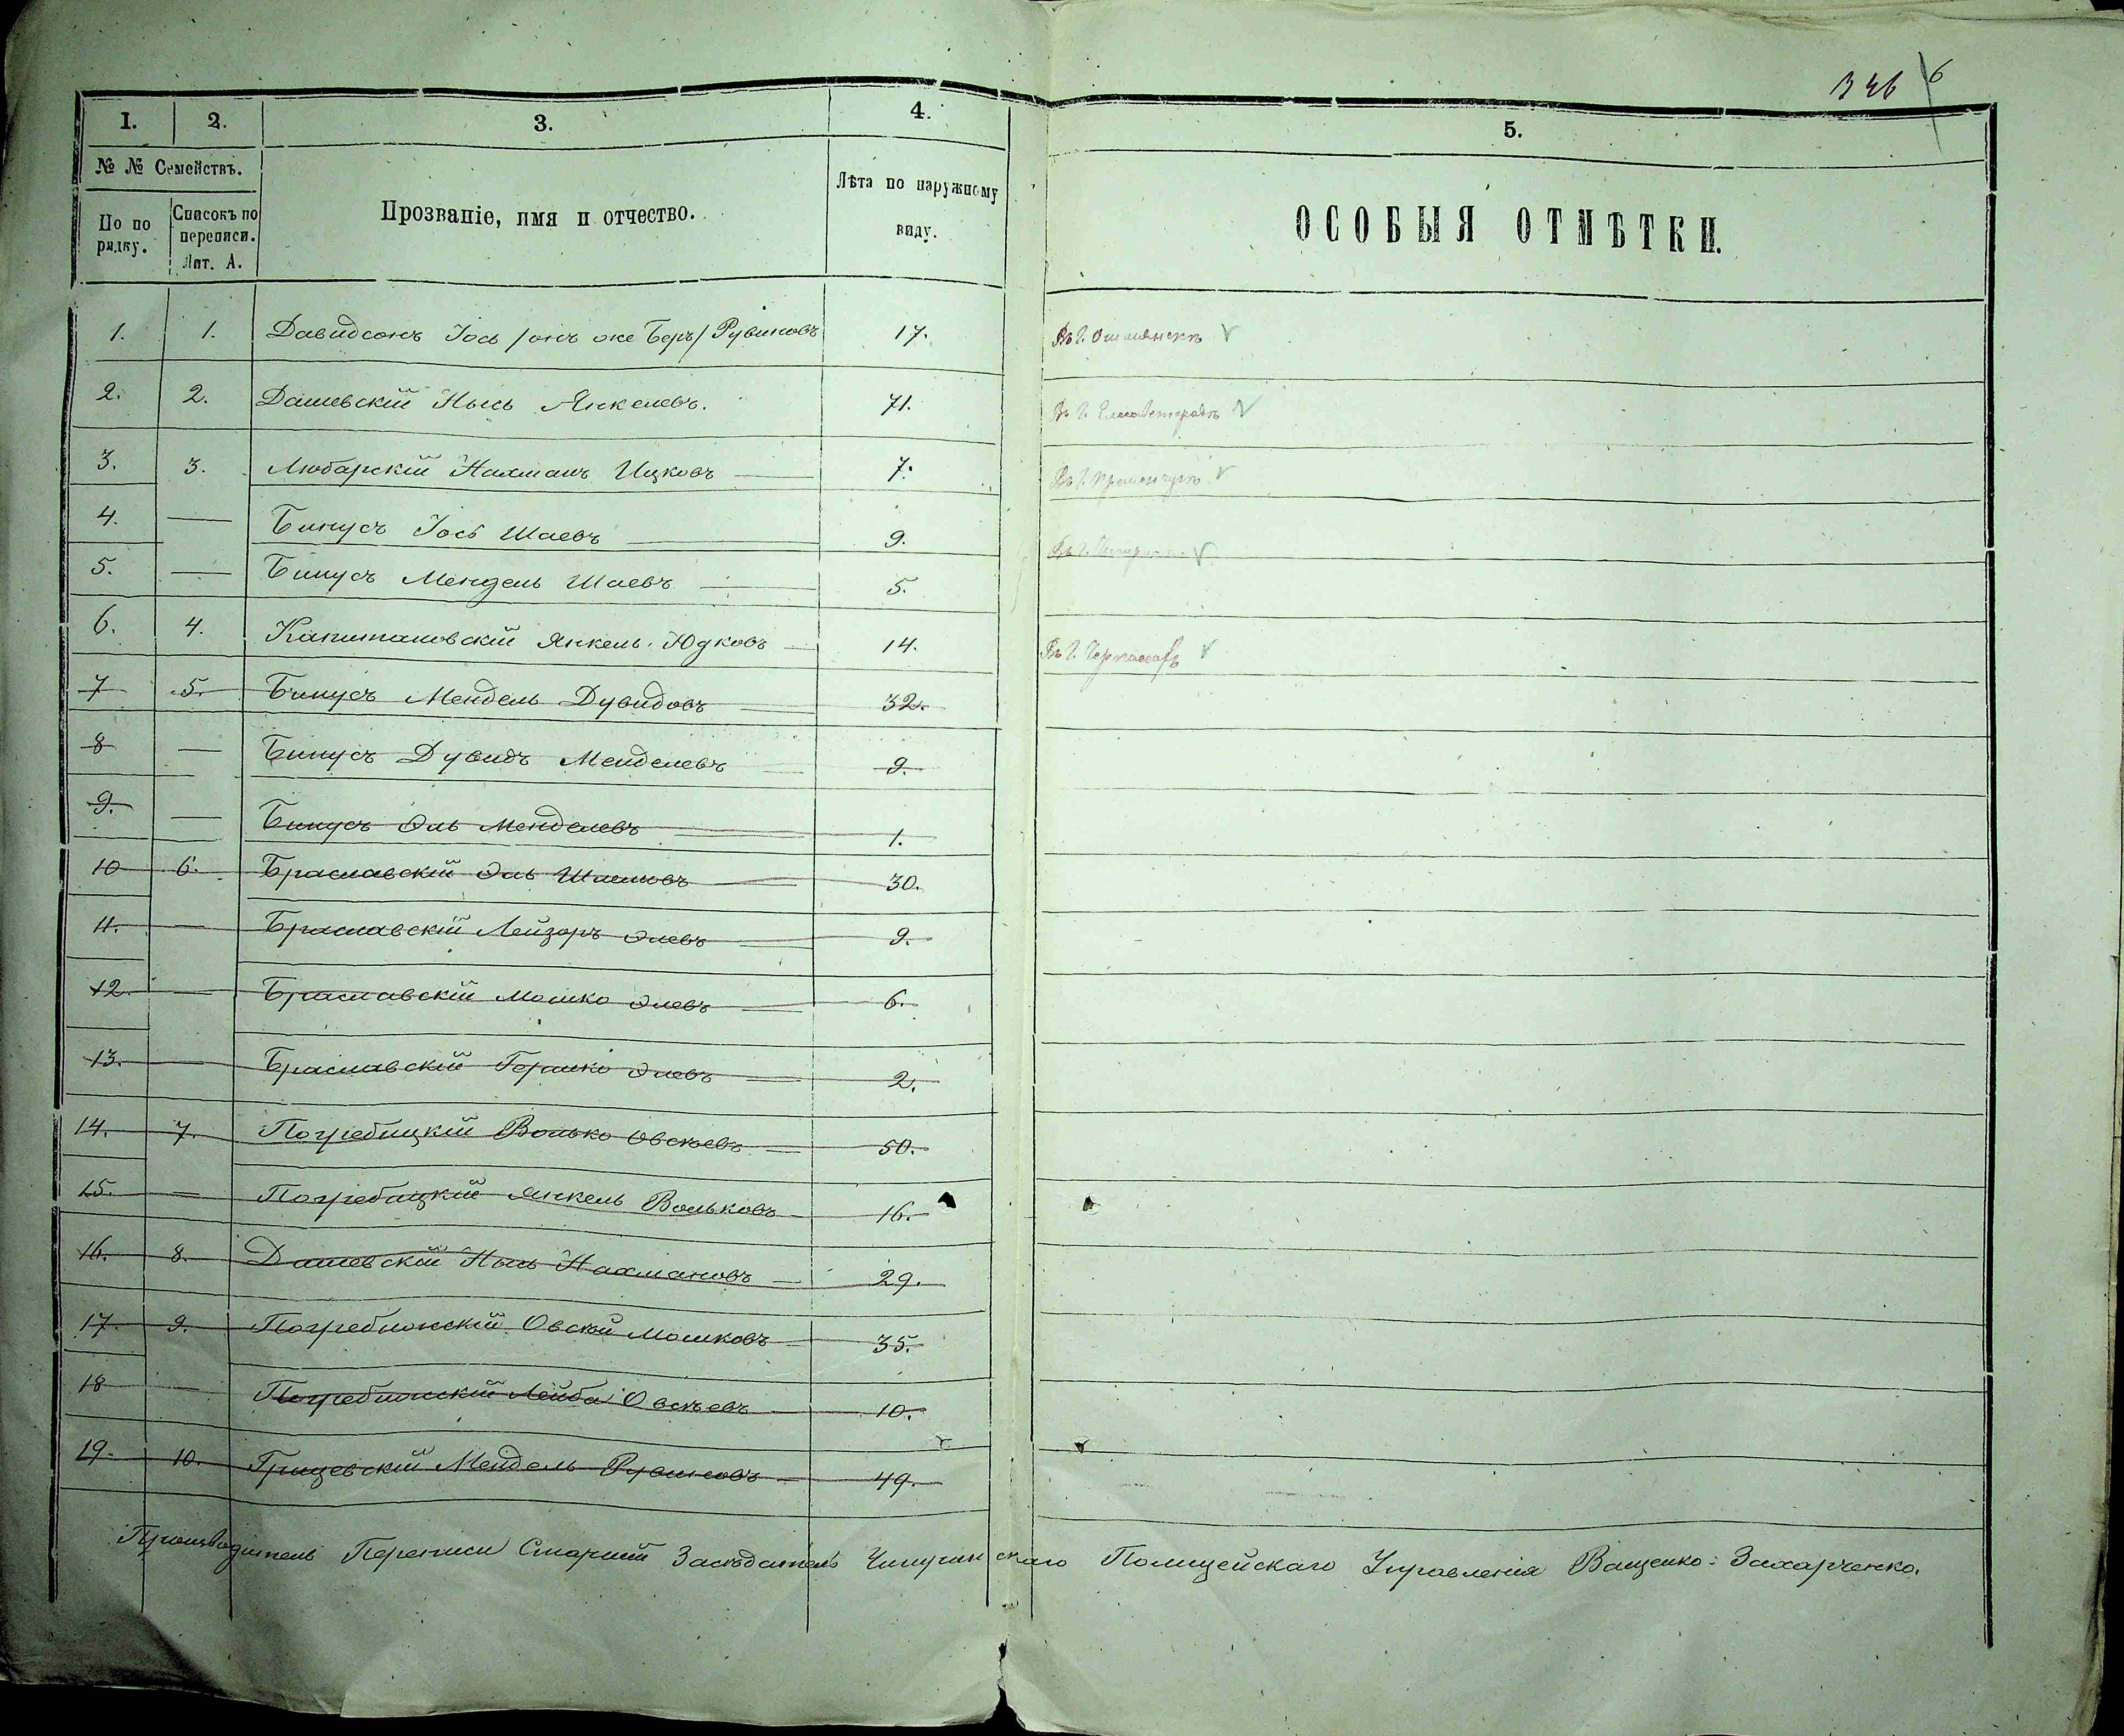 346 6
1. 2. 3. 4. 5.
№ № Семействъ.
По по рядку.
Списокъ по переписи. Лит. А.
Прозваніе, имя и отчество.
Лѣта по наружному виду.
ОСОБЫЯ ОТМѢТКИ.
1. 1. Давидсонъ Іось /онъ же Беръ/ Рувиновъ 17. Въ г.
2. 2. Дашевскій Нысь Янкелевъ. 71. Въ г. Елисаветградѣ
3. 3. Любарскій Нахманъ Ицковъ 7. Въ г. Кременчугѣ
4. — Бинусъ Іось Шаевъ 9. Въ г.
5. — Бинусъ Мендель Шаевъ 5.
6. 4. Капитановскій Янкель Юдковъ 14. Въ г. Черкассахъ
7 5. Бинусъ Мендель Дувидовъ 32.
8 — Бинусъ Дувидъ Менделевъ 9.
9. — Бинусъ Эль Менделевъ 1.
10 6. Браславскій Эль 30.
11. — Браславскій Лейзоръ Элевъ 9.
12. — Браславскій Мошко Элевъ 6.
13. — Браславскій Гершко Элевъ 2.
14. 7. Погребицкій Волько Овсѣевъ 50.
15. — Погребицкій Янкель Вольковъ 16.
16. 8. Дашевскій Нысь Нахмановъ 29.
17. 9. Погребижскій Овсѣй Мошковъ 35.
18 — Погребижскій Лейба Овсѣевъ 10.
19. 10. Грицевскій Мендель Рувиновъ 49.
Производитель Переписи Старшій Засѣдатель Чигиринскаго Полицейскаго Управленія Ващенко-Захарченко.